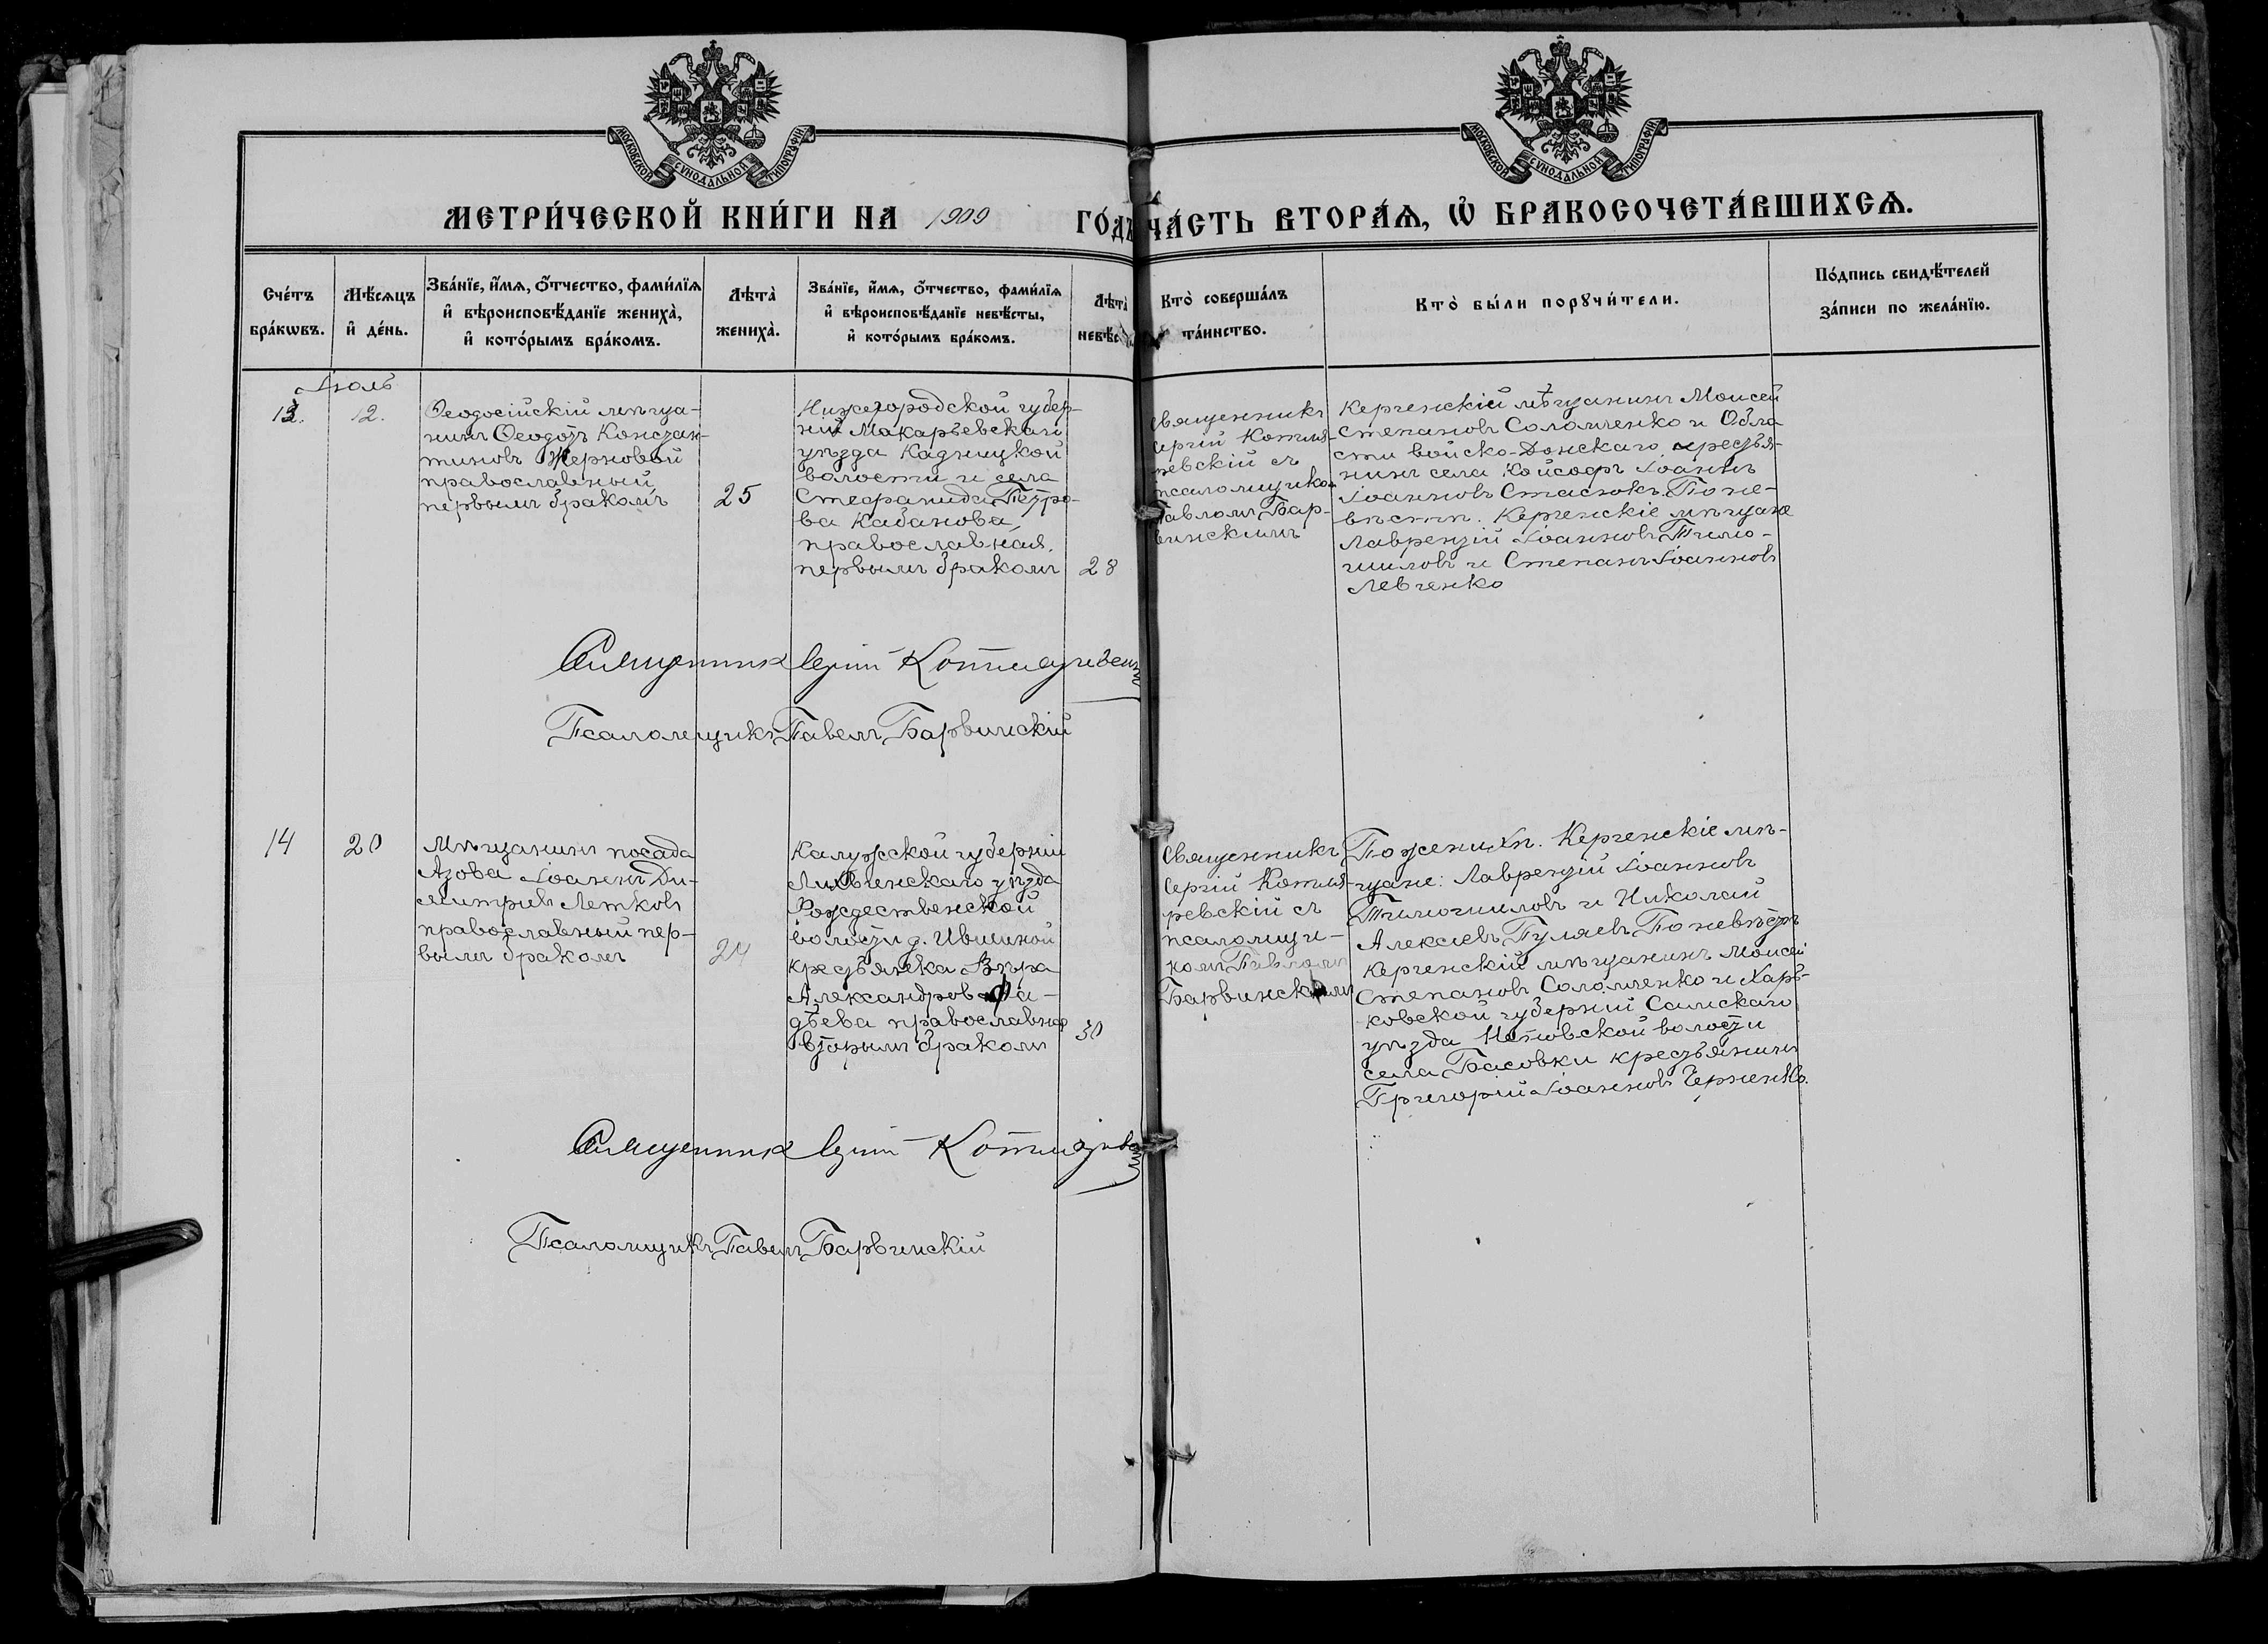 МОСКОВСКОЙ СѴНОДАЛЬНОЙ ТИПОГРАФІИ
МОСКОВСКОЙ СѴНОДАЛЬНОЙ ТИПОГРАФІИ
МЕТРИ́ЧЕСКОЙ КНИ́ГИ НА 1909 ГО́ДЪ
ЧА́СТЬ ВТОРА́Ѧ, Ѽ БРАКОСОЧЕТА́ВШИХСѦ.
Сче́тъ
бра́кѡвъ.
Мѣ́сѧцъ
и҆ де́нь.
Зва́нїе, и҆́мѧ, ѻ҆́тчество, фами́лїѧ
и҆ вѣроисповѣ́данїе жениха̀,
и҆ кото́рымъ бра́комъ.
Лѣта̀
жениха̀.
Зва́нїе, и҆́мѧ, ѻ҆́тчество, фами́лїѧ
и҆ вѣроисповѣ́данїе невѣ́сты,
и҆ кото́рымъ бра́комъ.
Лѣта̀
невѣ́с
Кто̀ соверша́лъ
та́инство.
Кто̀ бы́ли порꙋчи́тели.
По́дпись свидѣ́телей
за́писи по жела́нїю.
Іюль
13.
12.
Ѳеодосійскій мѣща-
нинъ Ѳеодотъ Констан-
тиновъ Жерновой
православный
первымъ бракомъ
25
Нижегородской губер-
ніи Макарьевскаго
уѣзда Кадницкой
волости и села
Стефанида Петро-
ва Кабанова,
православная,
первымъ бракомъ
28
Священникъ
Сергій Котля-
ревскій съ
псаломщиком
Павломъ Бар-
винскимъ
Керченскій мѣщанинъ Моисей
Степановъ Соломченко и Обла
сти войско-Донскаго крестья-
нинъ села Койсогъ Іоаннъ
Іоанновъ Стасюкъ. По не-
вѣстѣ. Керченскіе мѣщане
Лаврентій Іоанновъ Тимо-
шиловъ и Степанъ Іоанновъ
Левченко
Священник Сергій Котляревскій
Псаломщикъ Павелъ Барвинскій
14
20
Мѣщанинъ посада
Азова Іоаннъ Ди-
митріевъ Летковъ
православный пер-
вымъ бракомъ
24
Калужской губерніи
Лихвинскаго уѣзда
Рождественской
волости д. Ившиной
крестьянка Вѣра
Александрова Фа-
дѣева православная
вторымъ бракомъ
30
Священникъ
Сергій Котля-
ревскій съ
псаломщи-
комъ Павломъ
Барвинскимъ
По женихѣ. Керченскіе мѣ-
щане: Лаврентій Іоанновъ
Тимошиловъ и Николай
Алексіевъ Гуляевъ По невѣстѣ
Керченскій мѣщанинъ Моисей
Степановъ Соломченко и Харь-
ковской губерніи Сумскаго
уѣзда волости
села Басовки крестьянинъ
Григорій Іоанновъ Черненко.
Священник Сергій Котляревс
Псаломщикъ Павелъ Барвинскій